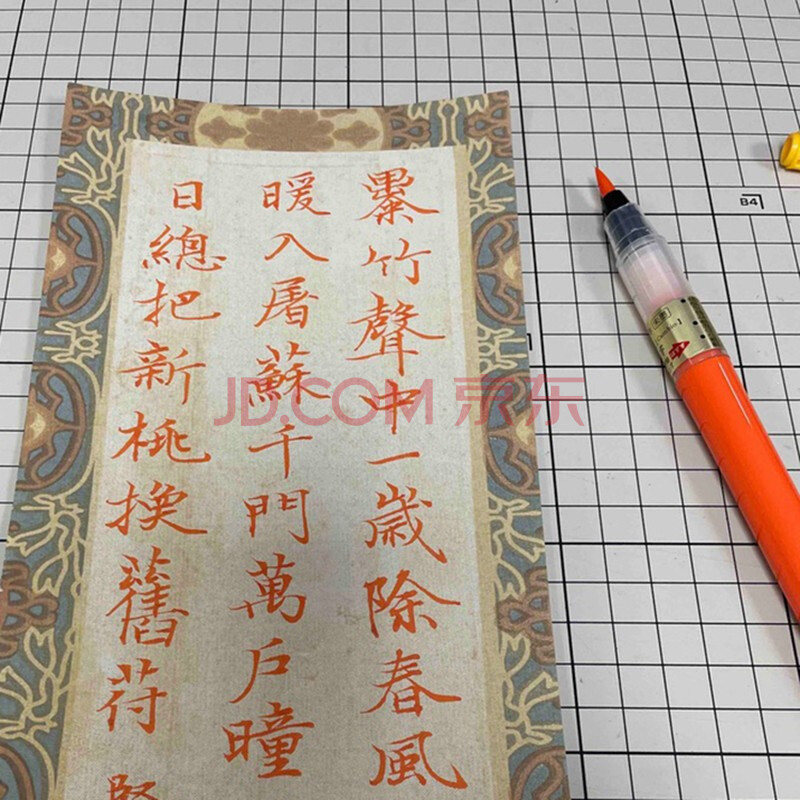 竹聲中一歲除春風
暖入屠蘇千門萬戶曈
日總把新桃換舊苻
JD.COM 京东
84